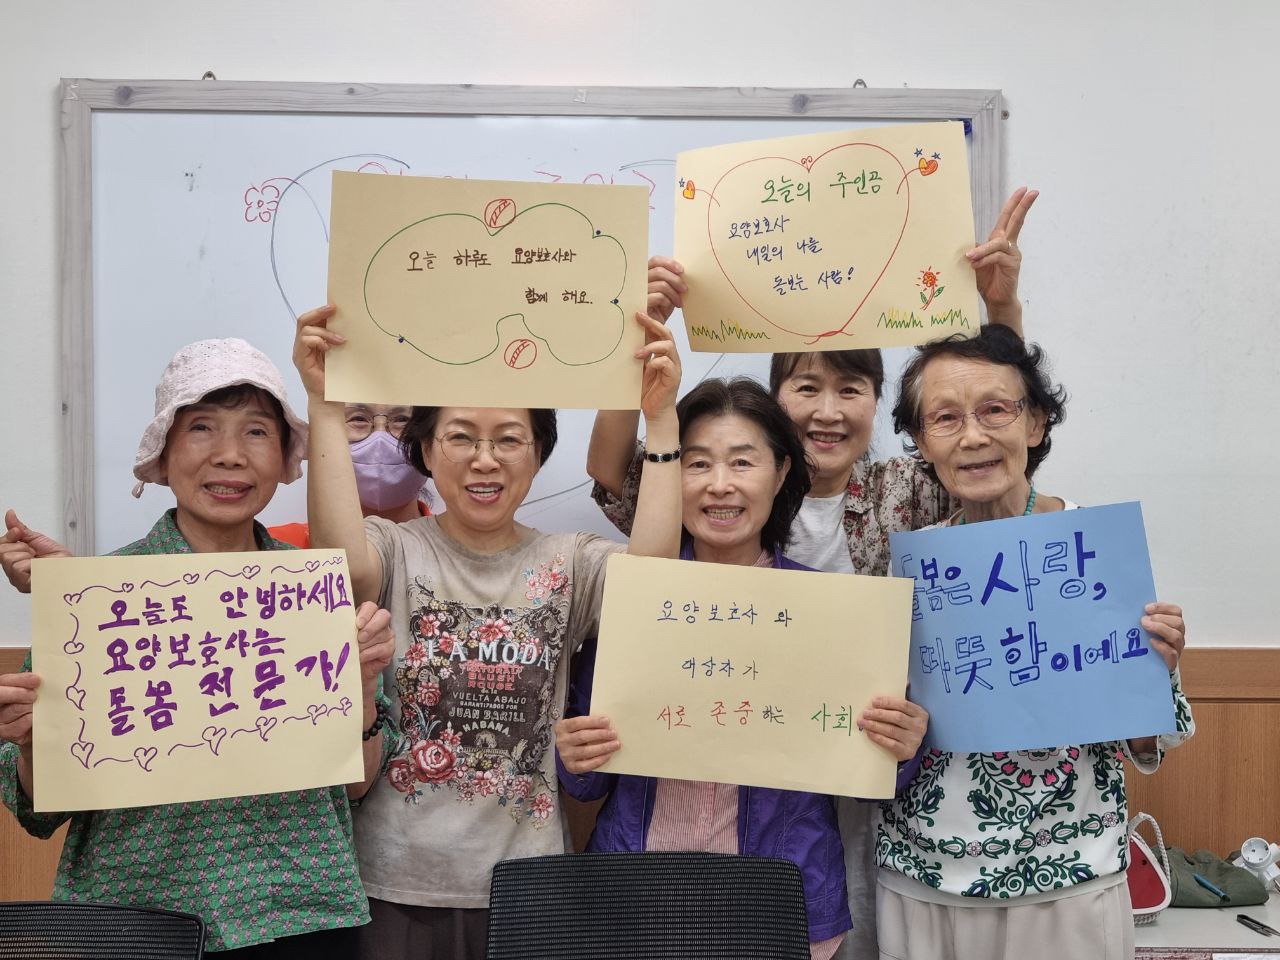 오늘 하루도 요양보호사와
함께 해요.
오늘의 주인공
요양보호사
내일의 나를
돌보는 사람!
오늘도 안녕하세요
요양보호사는
돌봄 전문가!
LA MODA
BLUSH
ROUGE
VUELTA ABAJO
GARANTIZADOS POR
JUAN BARILL
HABANA
요양보호사 와
대상자 가
서로 존중하는 사회.
돌봄은 사랑,
따뜻함이에요